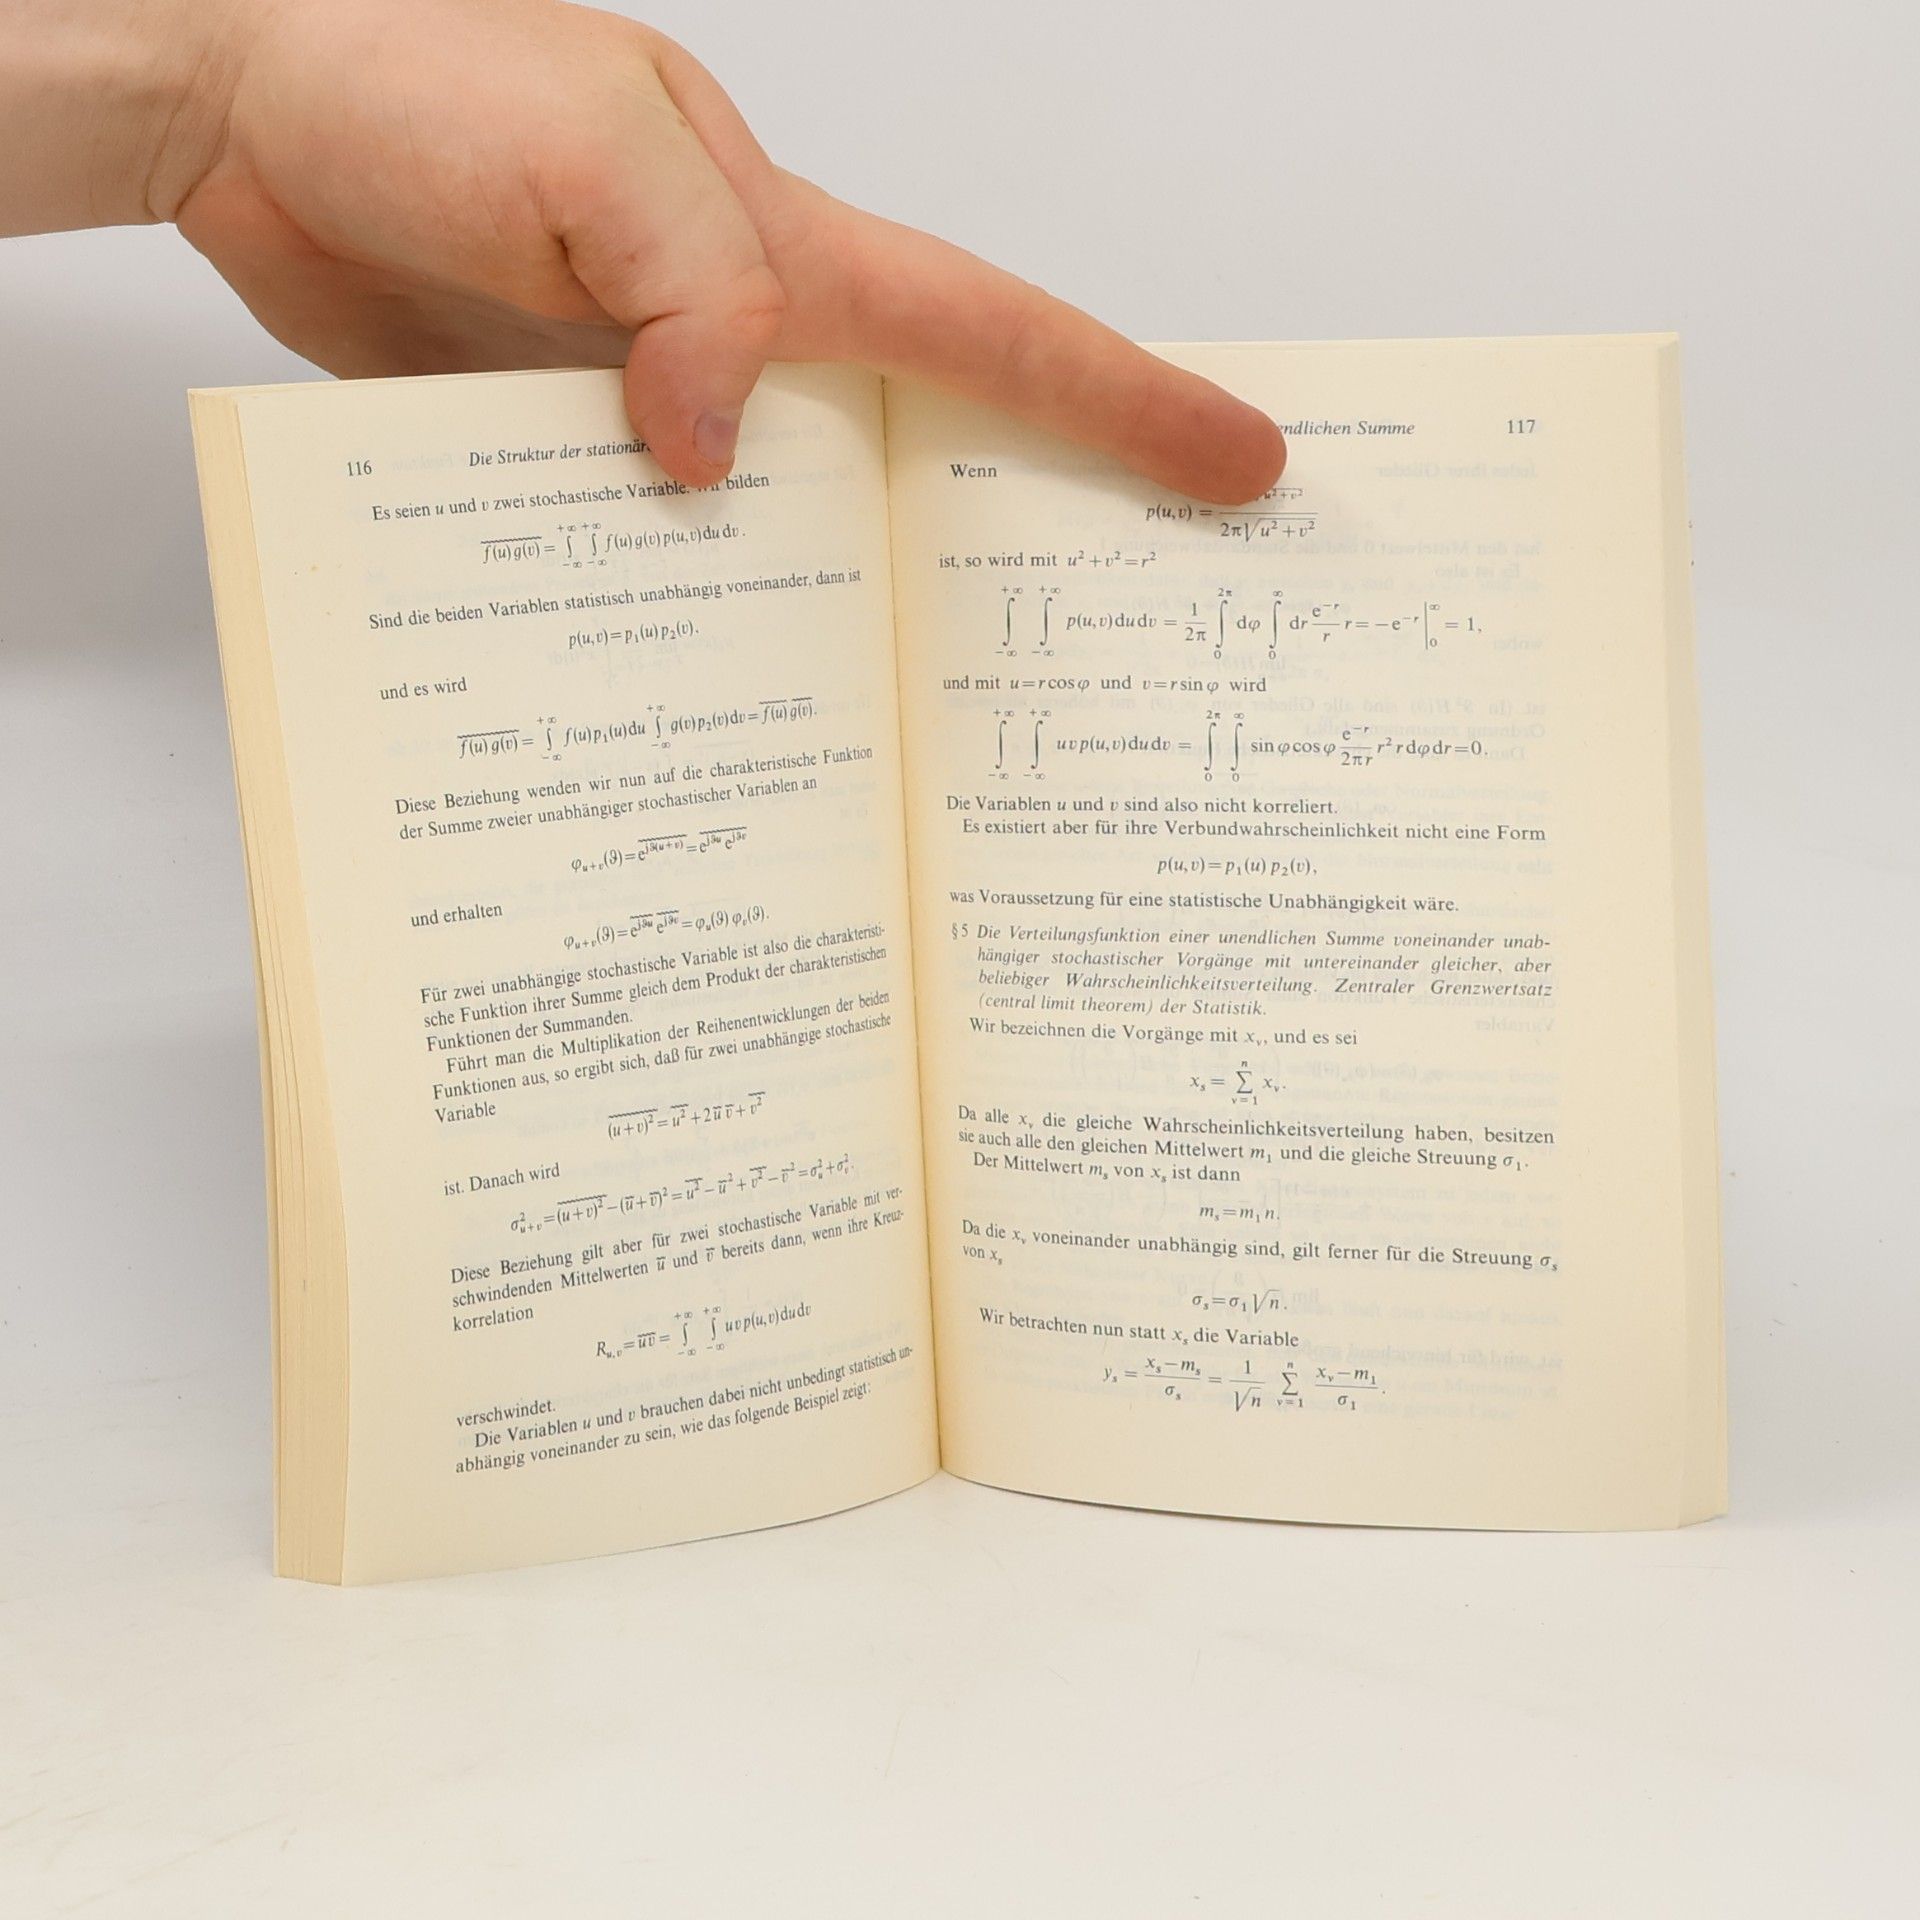 116 Die Struktur der
Es seien u und v zwei stochastische Variable. bilden
f(u) g(v) = ∫_{-∞}^{+∞} ∫_{-∞}^{+∞} f(u) g(v) p(u,v) du dv.
Sind die beiden Variablen statistisch unabhängig voneinander, dann ist
p(u,v) = p₁(u) p₂(v).
und es wird
f(u) g(v) = ∫_{-∞}^{+∞} f(u) p₁(u) du ∫_{-∞}^{+∞} g(v) p₂(v) dv = f(u) g(v).
Diese Beziehung wenden wir nun auf die charakteristische Funktion
der Summe zweier unabhängiger stochastischer Variablen an
φ_{u+v}(ϑ) = e^{jϑ(u+v)} = e^{jϑu} e^{jϑv}
und erhalten
φ_{u+v}(ϑ) = e^{jϑu} e^{jϑv} = φ_u(ϑ) φ_v(ϑ).
Für zwei unabhängige stochastische Variable ist also die charakteristi-
sche Funktion ihrer Summe gleich dem Produkt der charakteristischen
Funktionen der Summanden.
Führt man die Multiplikation der Reihenentwicklungen der beiden
Funktionen aus, so ergibt sich, daß für zwei unabhängige stochastische
Variable
(u+v)² = u² + 2 u̅ v̅ + v²
ist. Danach wird
σ²_{u+v} = (u+v)² − (u̅+v̅)² = u² − u̅² + v² − v̅² = σ_u² + σ_v².
Diese Beziehung gilt aber für zwei stochastische Variable mit ver-
schwindenden Mittelwerten u̅ und v̅ bereits dann, wenn ihre Kreuz-
korrelation
R_{u,v} = uv = ∫_{-∞}^{+∞} ∫_{-∞}^{+∞} u v p(u,v) du dv
verschwindet.
Die Variablen u und v brauchen dabei nicht unbedingt statistisch un-
abhängig voneinander zu sein, wie das folgende Beispiel zeigt:
Summe 117
Wenn
p(u,v) = / 2π√(u²+v²)
ist, so wird mit u² + v² = r²
∫_{-∞}^{+∞} ∫_{-∞}^{+∞} p(u,v) du dv = 1/2π ∫_0^{2π} dφ ∫_0^∞ dr e^{-r}/r r = −e^{-r} |_0^∞ = 1,
und mit u = r cos φ und v = r sin φ wird
∫_{-∞}^{+∞} ∫_{-∞}^{+∞} u v p(u,v) du dv = ∫_0^{2π} ∫_0^∞ sin φ cos φ e^{-r}/2πr r² r dφ dr = 0.
Die Variablen u und v sind also nicht korreliert.
Es existiert aber für ihre Verbundwahrscheinlichkeit nicht eine Form
p(u,v) = p₁(u) p₂(v),
was Voraussetzung für eine statistische Unabhängigkeit wäre.
§ 5 Die Verteilungsfunktion einer unendlichen Summe voneinander unab-
hängiger stochastischer Vorgänge mit untereinander gleicher, aber
beliebiger Wahrscheinlichkeitsverteilung. Zentraler Grenzwertsatz
(central limit theorem) der Statistik.
Wir bezeichnen die Vorgänge mit x_ν, und es sei
x_s = Σ_{ν=1}^n x_ν.
Da alle x_ν die gleiche Wahrscheinlichkeitsverteilung haben, besitzen
sie auch alle den gleichen Mittelwert m₁ und die gleiche Streuung σ₁.
Der Mittelwert m_s von x_s ist dann
m_s = m₁ n.
Da die x_ν voneinander unabhängig sind, gilt ferner für die Streuung σ_s
von x_s
σ_s = σ₁ √n.
Wir betrachten nun statt x_s die Variable
y_s = (x_s − m_s)/σ_s = 1/√n Σ_{ν=1}^n (x_ν − m₁)/σ₁.